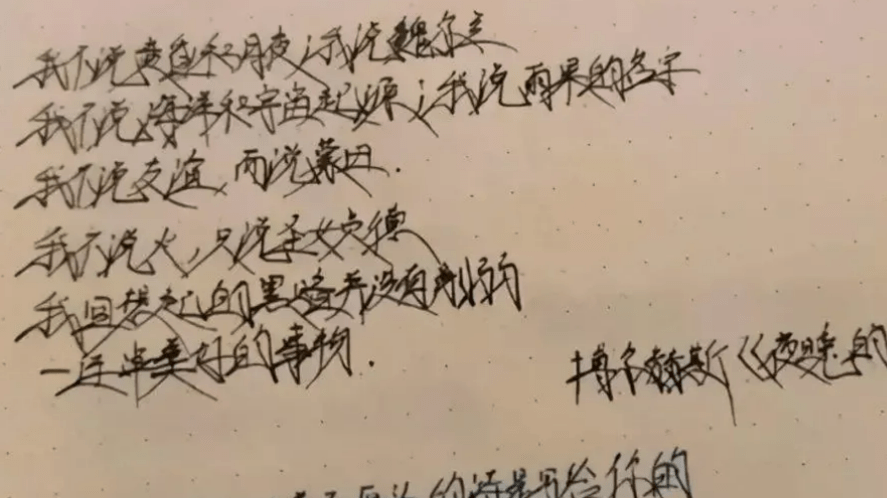 我不说黄昏和月夜；我说魏尔兰
我不说海洋和宇宙起源；我说雨果的名字
我不说友谊，而说蒙田.
我不说火，只说圣女贞德
我回想起的黑暗并没有削弱
一连串美好的事物.
博尔赫斯《夜晚的
的诗是写给你的